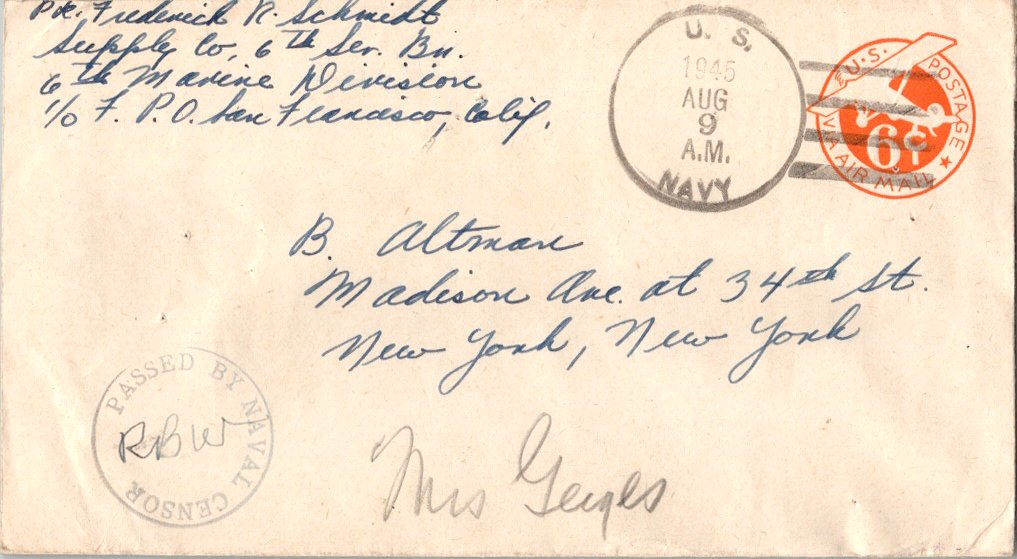 Pvt. Frederick R. Schmidt
Supply Co, 6th Ser. Bn.
6th Marine Division
c/o F. P. O. San Francisco, Calif.
U. S.
1945
AUG
9
A.M.
NAVY
U.S. POSTAGE
6¢
VIA AIR MAIL
B. Altman
Madison Ave. at 34th St.
New York, New York
PASSED BY NAVAL CENSOR
RBW
Mrs